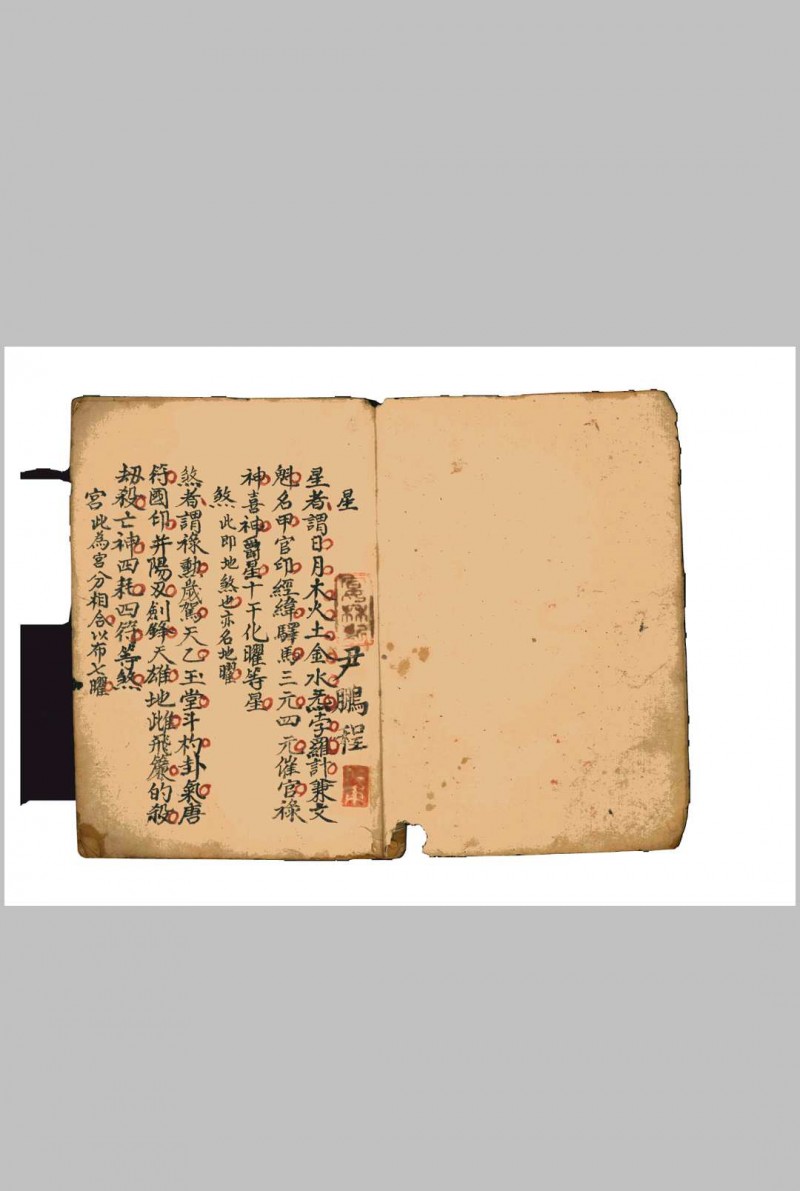 尹鵬程
星
星者謂日月木火土金水炁孛羅計兼文
魁名甲官印經緯驛馬三元四元催官祿
神喜神爵星十干化曜等星
煞 此即地煞也亦名地曜
煞者謂祿勳歲駕天乙玉堂斗杓卦氣唐
符國印并陽刃劍鋒天雄地雌飛簾的殺
刼殺亡神四耗四符等煞
宮此為宮分相合以布七曜